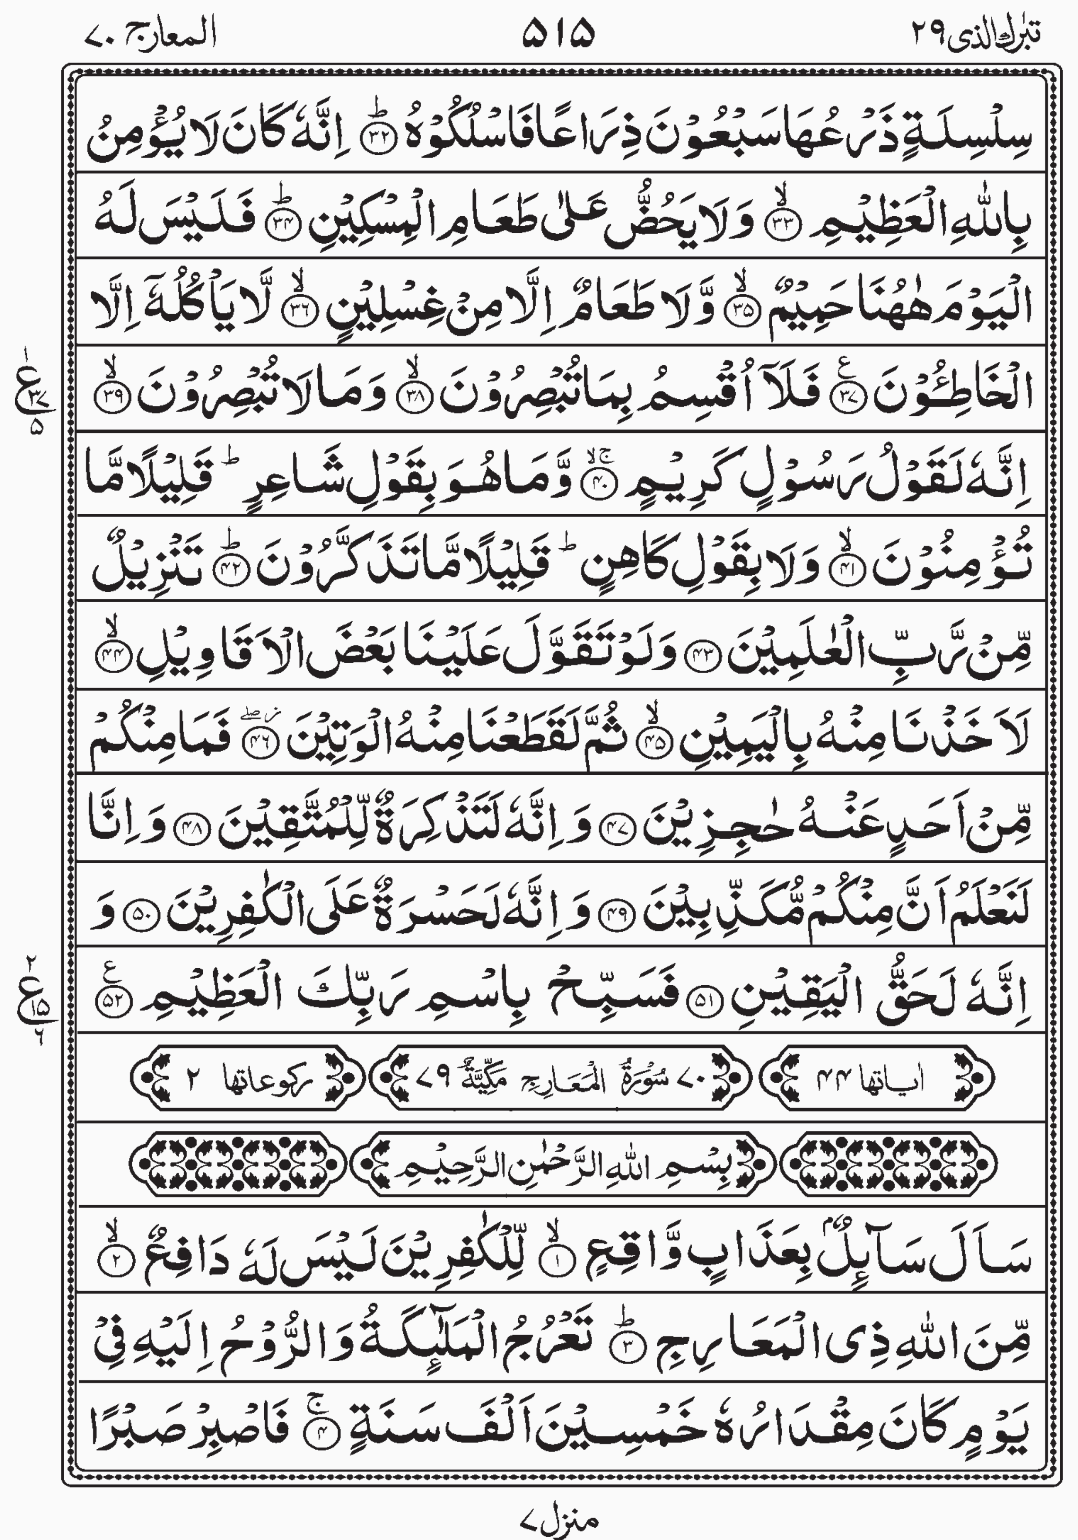 تبٰرك الذى ٢٩ ۵۱۵ المعارج ٧٠
سِلْسِلَةٍ ذَرْعُهَا سَبْعُوْنَ ذِرَاعًا فَاسْلُكُوْهُ ؕ‏﴿۳۲﴾ اِنَّهٗ كَانَ لَا يُؤْمِنُ
بِاللّٰهِ الْعَظِيْمِ ۙ‏﴿۳۳﴾ وَلَا يَحُضُّ عَلٰى طَعَامِ الْمِسْكِيْنِ ؕ‏﴿۳۴﴾ فَلَيْسَ لَهُ
الْيَوْمَ هٰهُنَا حَمِيْمٌ ۙ‏﴿۳۵﴾ وَّلَا طَعَامٌ اِلَّا مِنْ غِسْلِيْنٍ ۙ‏﴿۳۶﴾ لَّا يَاْكُلُهٗۤ اِلَّا
الْخَاطِـُٔوْنَ ع‏﴿۳۷﴾ فَلَاۤ اُقْسِمُ بِمَا تُبْصِرُوْنَ ۙ‏﴿۳۸﴾ وَمَا لَا تُبْصِرُوْنَ ۙ‏﴿۳۹﴾
١ ع ٣٧ ۵
اِنَّهٗ لَقَوْلُ رَسُوْلٍ كَرِيْمٍ ۚۙ‏﴿۴۰﴾ وَّمَا هُوَ بِقَوْلِ شَاعِرٍ ؕ قَلِيْلًا مَّا
تُؤْمِنُوْنَ ۙ‏﴿۴۱﴾ وَلَا بِقَوْلِ كَاهِنٍ ؕ قَلِيْلًا مَّا تَذَكَّرُوْنَ ؕ‏﴿۴۲﴾ تَنْزِيْلٌ
مِّنْ رَّبِّ الْعٰلَمِيْنَ ﴿۴۳﴾ وَلَوْ تَقَوَّلَ عَلَيْنَا بَعْضَ الْاَقَاوِيْلِ ۙ‏﴿۴۴﴾
لَاَخَذْنَا مِنْهُ بِالْيَمِيْنِ ۙ‏﴿۴۵﴾ ثُمَّ لَقَطَعْنَا مِنْهُ الْوَتِيْنَ ز ۖ‏﴿۴۶﴾ فَمَا مِنْكُمْ
مِّنْ اَحَدٍ عَنْهُ حٰجِزِيْنَ ﴿۴۷﴾ وَاِنَّهٗ لَتَذْكِرَةٌ لِّلْمُتَّقِيْنَ ﴿۴۸﴾ وَاِنَّا
لَنَعْلَمُ اَنَّ مِنْكُمْ مُّكَذِّبِيْنَ ﴿۴۹﴾ وَاِنَّهٗ لَحَسْرَةٌ عَلَى الْكٰفِرِيْنَ ﴿۵۰﴾ وَ
اِنَّهٗ لَحَقُّ الْيَقِيْنِ ﴿۵۱﴾ فَسَبِّحْ بِاسْمِ رَبِّكَ الْعَظِيْمِ ع‏﴿۵۲﴾
٢ ع ١۵ ٦
اٰياتها ۴۴ ٧٠ سُوْرَةُ الْمَعَارِجِ مَكِّيَّةٌ ٧٩ ركوعاتها ٢
بِسْمِ اللّٰهِ الرَّحْمٰنِ الرَّحِيْمِ
سَاَلَ سَآئِلٌۢ بِعَذَابٍ وَّاقِعٍ ۙ‏﴿۱﴾ لِّلْكٰفِرِيْنَ لَيْسَ لَهٗ دَافِعٌ ۙ‏﴿۲﴾
مِّنَ اللّٰهِ ذِى الْمَعَارِجِ ؕ‏﴿۳﴾ تَعْرُجُ الْمَلٰٓئِكَةُ وَالرُّوْحُ اِلَيْهِ فِىْ
يَوْمٍ كَانَ مِقْدَارُهٗ خَمْسِيْنَ اَلْفَ سَنَةٍ ۚ‏﴿۴﴾ فَاصْبِرْ صَبْرًا
منزل ٧